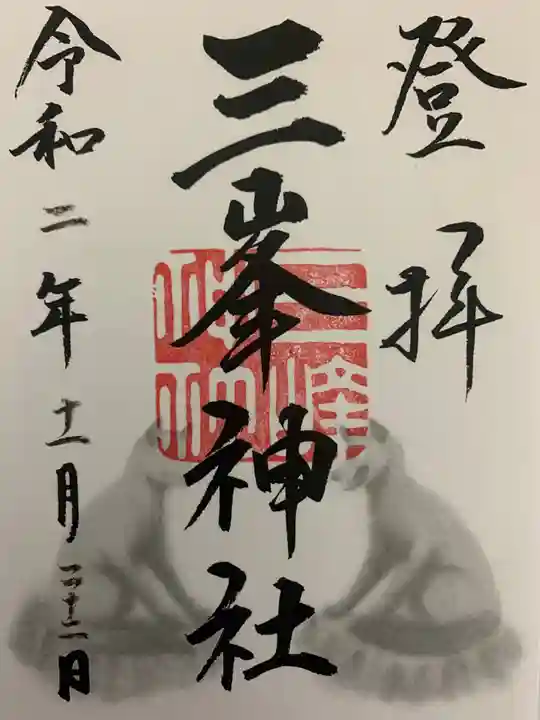 登拝
三峯神社
令和二年十一月二十二日
三峰神社